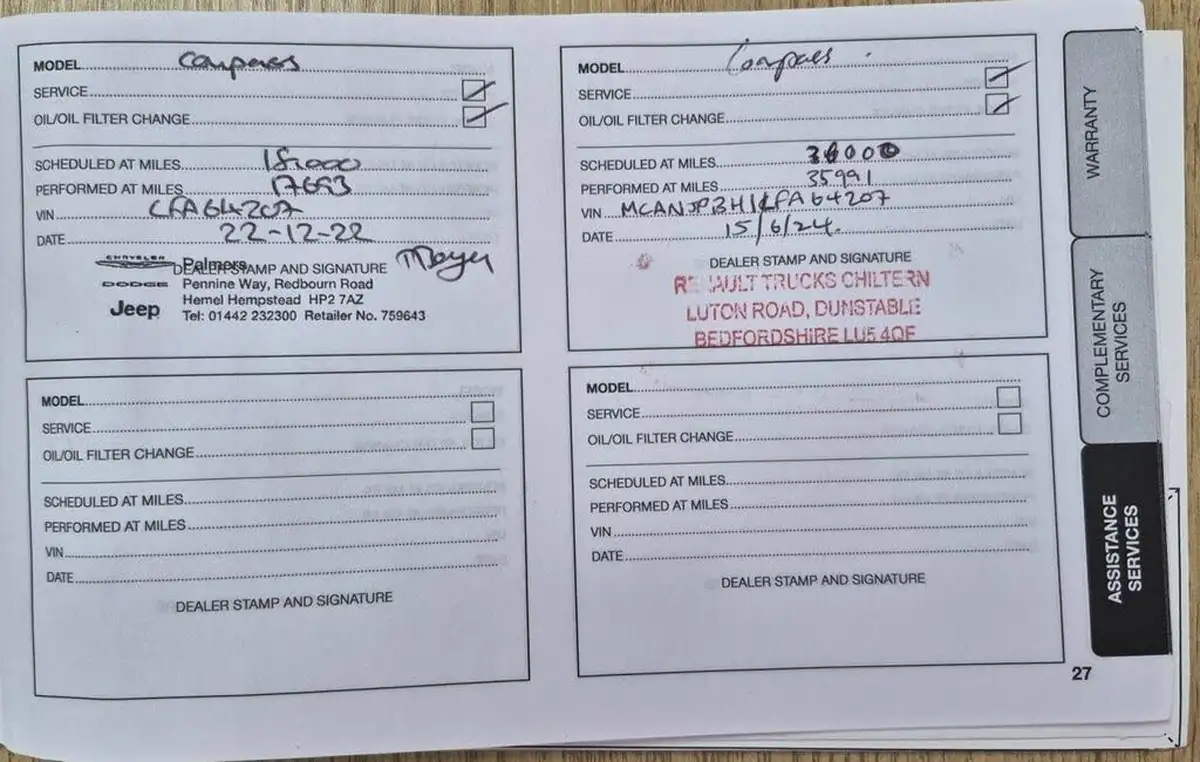 MODEL Compass
SERVICE
OIL/OIL FILTER CHANGE
SCHEDULED AT MILES 18000
PERFORMED AT MILES 17693
VIN LFA64207
DATE 22-12-22
DEALER STAMP AND SIGNATURE
CHRYSLER
DODGE
Jeep
Palmers
Pennine Way, Redbourn Road
Hemel Hempstead HP2 7AZ
Tel: 01442 232300 Retailer No. 759643
MODEL Compass
SERVICE
OIL/OIL FILTER CHANGE
SCHEDULED AT MILES 36000
PERFORMED AT MILES 35991
VIN MCANJPBH1KFA64207
DATE 15/6/24.
DEALER STAMP AND SIGNATURE
TRUCKS CHILTERN
LUTON ROAD, DUNSTABLE
BEDFORDSHIRE LU5 4QF
MODEL
SERVICE
OIL/OIL FILTER CHANGE
SCHEDULED AT MILES
PERFORMED AT MILES
VIN
DATE
DEALER STAMP AND SIGNATURE
MODEL
SERVICE
OIL/OIL FILTER CHANGE
SCHEDULED AT MILES
PERFORMED AT MILES
VIN
DATE
DEALER STAMP AND SIGNATURE
WARRANTY
COMPLEMENTARY
SERVICES
ASSISTANCE
SERVICES
27